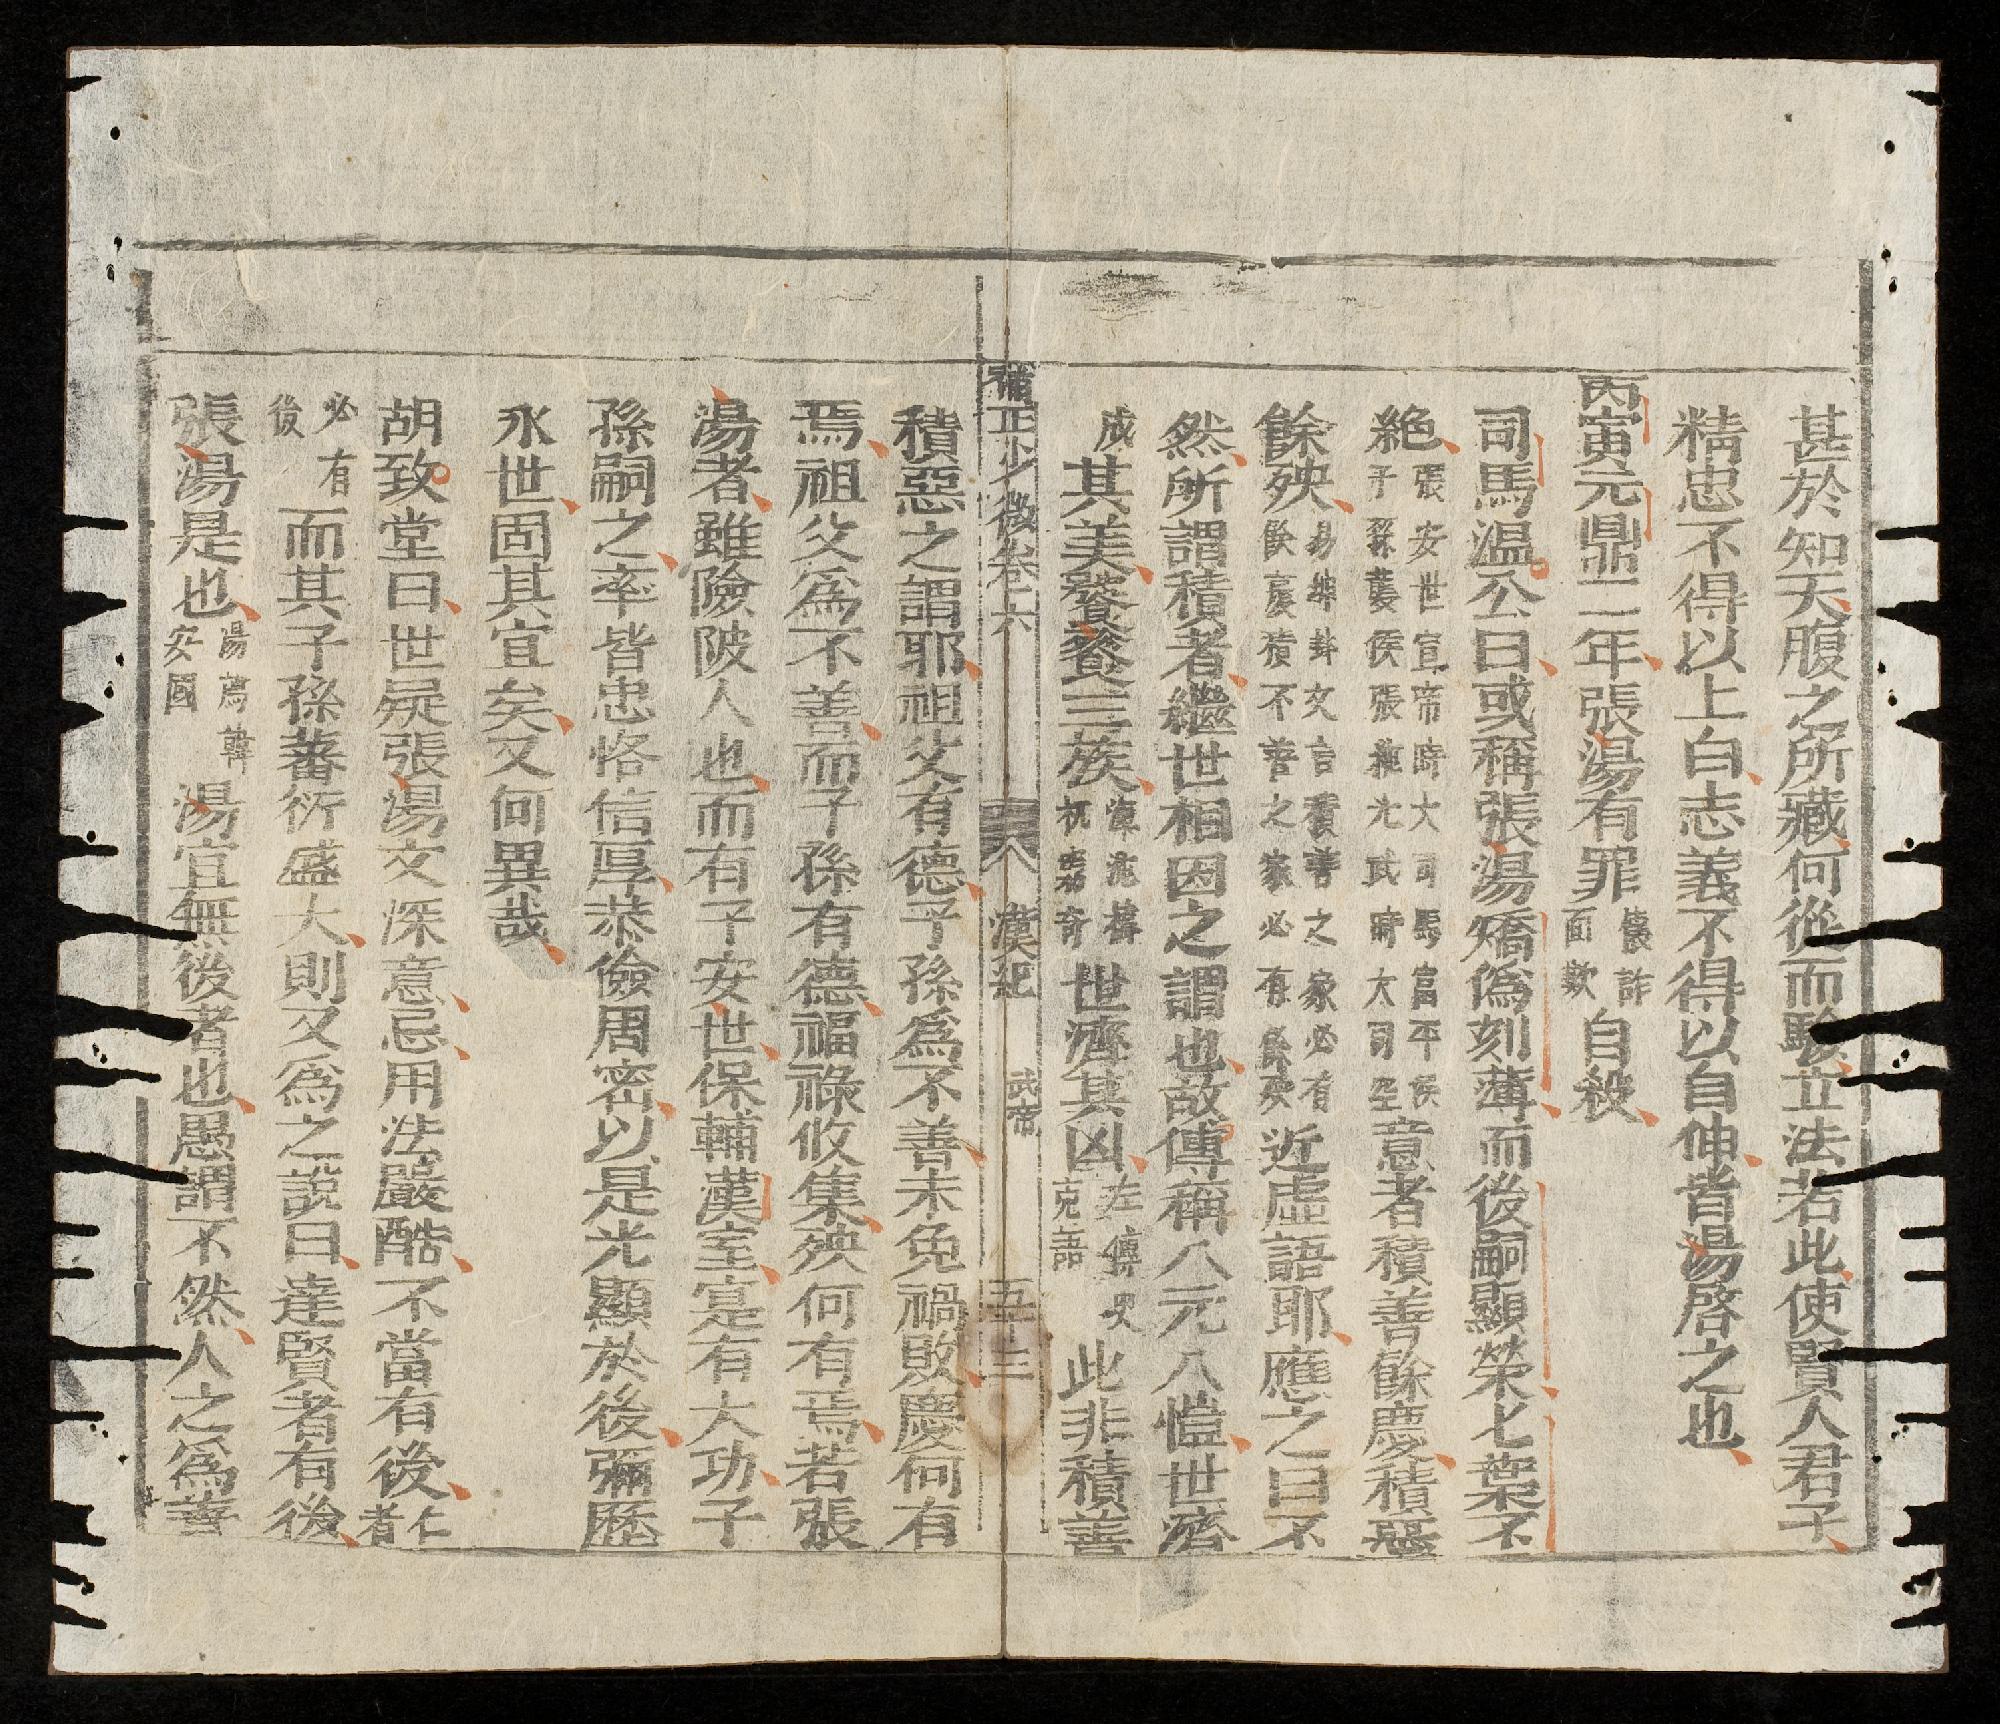 甚於知天腹之所藏何從而驗立法若此使賢人君子
精忠不得以上白志義不得以自伸省湯啓之也
丙寅元鼎二年張湯有罪懷詐面欺自殺
司馬温公曰或稱張湯矯僞刻薄而後嗣顯榮七葉不
絶張安世宣帝時大司馬富平侯子孫襲侯張純光武時大司空意者積善餘慶積惡
餘殃易坤卦文言積善之家必有餘慶積不善之家必有餘殃近虛語耶應之曰不
然所謂積者繼世相因之謂也故傳稱八元八愷世濟
成其美饕餮三族渾沌檮杌窮奇世濟其凶左傳史克語此非積善
補正少微卷六 漢紀 武帝 五十三
積惡之謂耶祖父有德子孫爲不善未免禍敗慶何有
焉祖父爲不善而子孫有德福祿攸集殃何有焉若張
湯者雖險陂人也而有子安世保輔漢室寔有大功子
孫嗣之率皆忠恪信厚恭儉周密以是光顯於後彌歷
永世固其宜矣又何異哉
胡致堂曰世疑張湯文深意忌用法嚴酷不當有後仁者
必有後而其子孫蕃衍盛大則又爲之說曰達賢者有後
張湯是也湯薦韓安國湯宜無後者也愚謂不然人之爲善